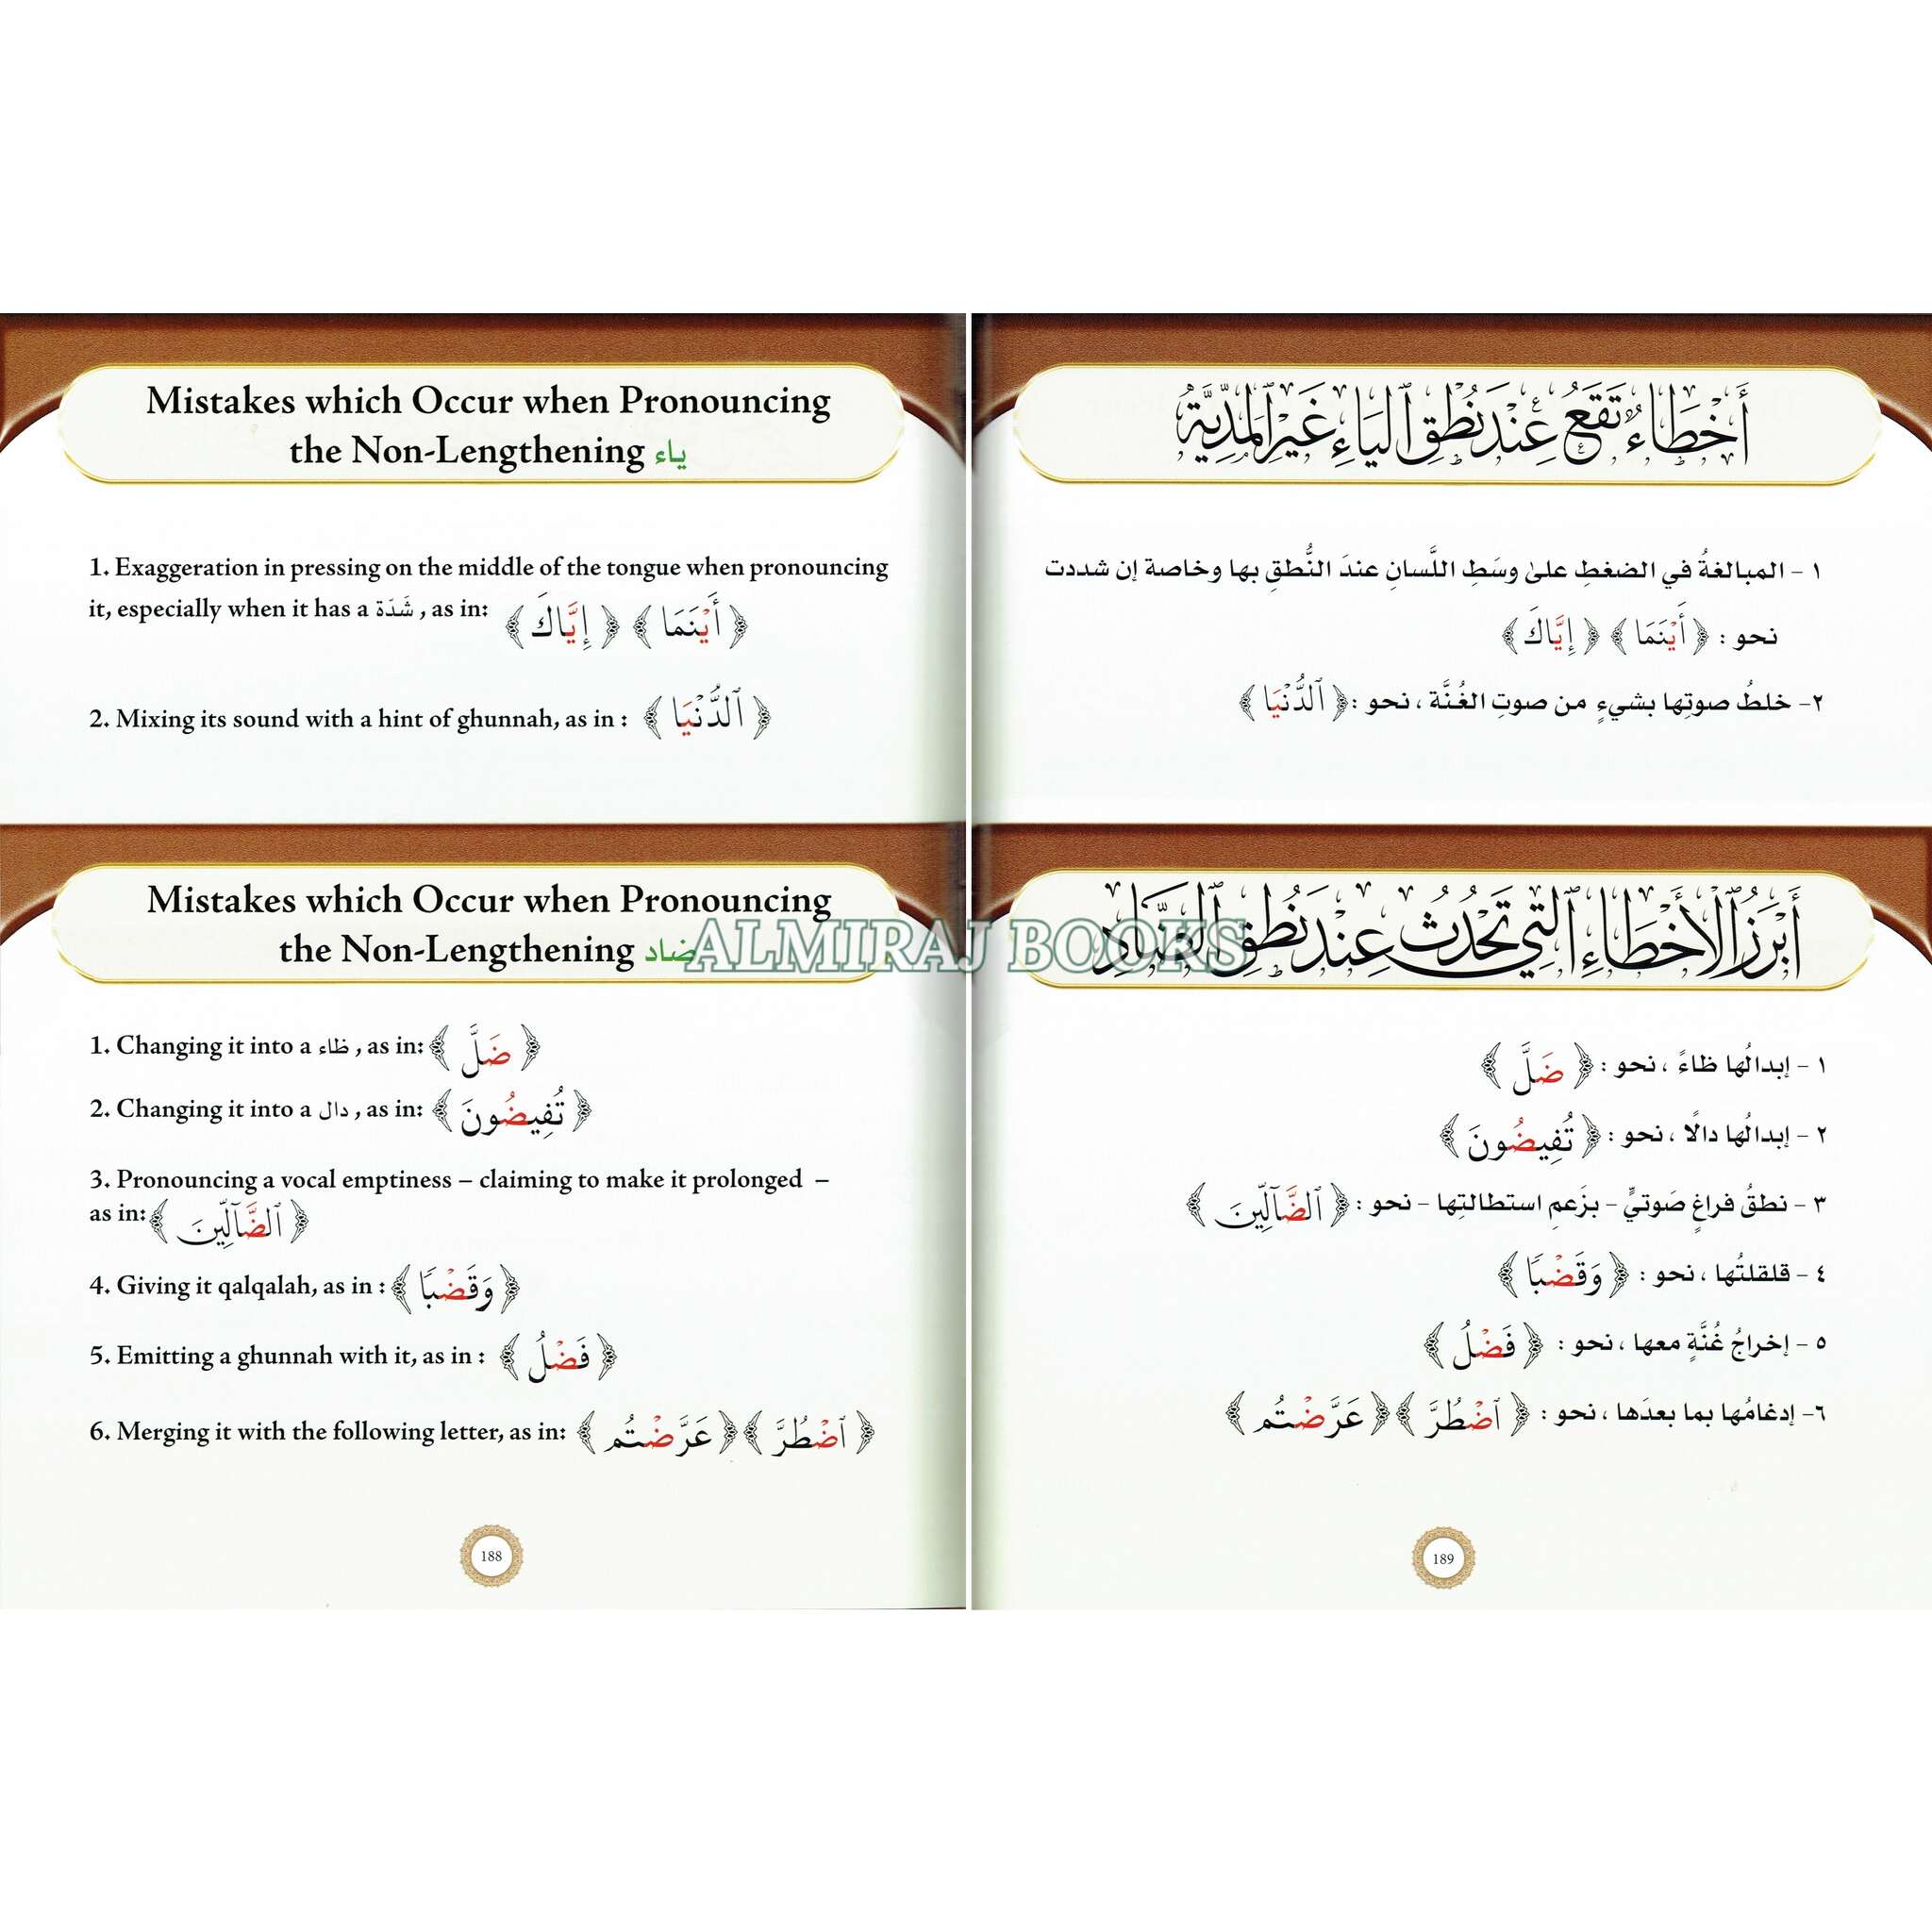 Mistakes which Occur when Pronouncing
the Non-Lengthening ياء
1. Exaggeration in pressing on the middle of the tongue when pronouncing
it, especially when it has a شَدّة , as in: ﴿ أَيْنَمَا ﴾ ﴿ إِيَّاكَ ﴾
2. Mixing its sound with a hint of ghunnah, as in : ﴿ ٱلدُّنْيَا ﴾
Mistakes which Occur when Pronouncing
the Non-Lengthening ضاد
1. Changing it into a ظاء , as in: ﴿ ضَلَّ ﴾
2. Changing it into a دال , as in: ﴿ تُفِيضُونَ ﴾
3. Pronouncing a vocal emptiness – claiming to make it prolonged –
as in: ﴿ ٱلضَّآلِّينَ ﴾
4. Giving it qalqalah, as in : ﴿ وَقَضْبًا ﴾
5. Emitting a ghunnah with it, as in : ﴿ فَضْلُ ﴾
6. Merging it with the following letter, as in: ﴿ ٱضْطُرَّ ﴾ ﴿ عَرَّضْتُم ﴾
188
أَخْطَاءٌ تَقَعُ عِنْدَ نُطْقِ ٱليَاءِ غَيْرِ ٱلمَدِّيَّةِ
١ - المبالغةُ في الضغطِ علىٰ وسَطِ اللَّسانِ عندَ النُّطقِ بها وخاصة إن شددت
نحو : ﴿ أَيْنَمَا ﴾ ﴿ إِيَّاكَ ﴾
٢- خلطُ صوتِها بشيءٍ من صوتِ الغُنَّة ، نحو : ﴿ ٱلدُّنْيَا ﴾
أَبْرَزُ ٱلْأَخْطَاءِ ٱلَّتِي تَحْدُثُ عِنْدَ نُطْقِ ٱلضَّادِ
١ - إبدالُها ظاءً ، نحو : ﴿ ضَلَّ ﴾
٢ - إبدالُها دالًا ، نحو : ﴿ تُفِيضُونَ ﴾
٣ - نطقُ فراغٍ صَوتيٍّ - بزَعمِ استطالتِها - نحو : ﴿ ٱلضَّآلِّينَ ﴾
٤ - قلقلتُها ، نحو : ﴿ وَقَضْبًا ﴾
٥ - إخراجُ غُنَّةٍ معها ، نحو : ﴿ فَضْلُ ﴾
٦- إدغامُها بما بعدَها ، نحو : ﴿ ٱضْطُرَّ ﴾ ﴿ عَرَّضْتُم ﴾
189
ALMIRAJ BOOKS